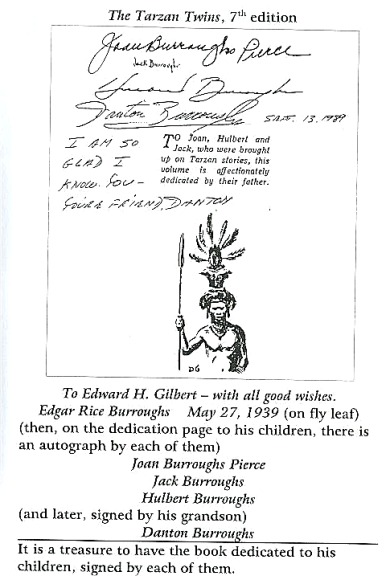 The Tarzan Twins, 7th edition
Joan Burroughs Pierce
Jack Burroughs
Burroughs
Danton Burroughs SAT. 13, 1989
I AM SO
GLAD I
KNOW YOU –
YOUR FRIEND, DANTON
TO Joan, Hulbert and
Jack, who were brought
up on Tarzan stories, this
volume is affectionately
dedicated by their father.
DG
To Edward H. Gilbert – with all good wishes.
Edgar Rice Burroughs May 27, 1939 (on fly leaf)
(then, on the dedication page to his children, there is
an autograph by each of them)
Joan Burroughs Pierce
Jack Burroughs
Hulbert Burroughs
(and later, signed by his grandson)
Danton Burroughs
It is a treasure to have the book dedicated to his
children, signed by each of them.